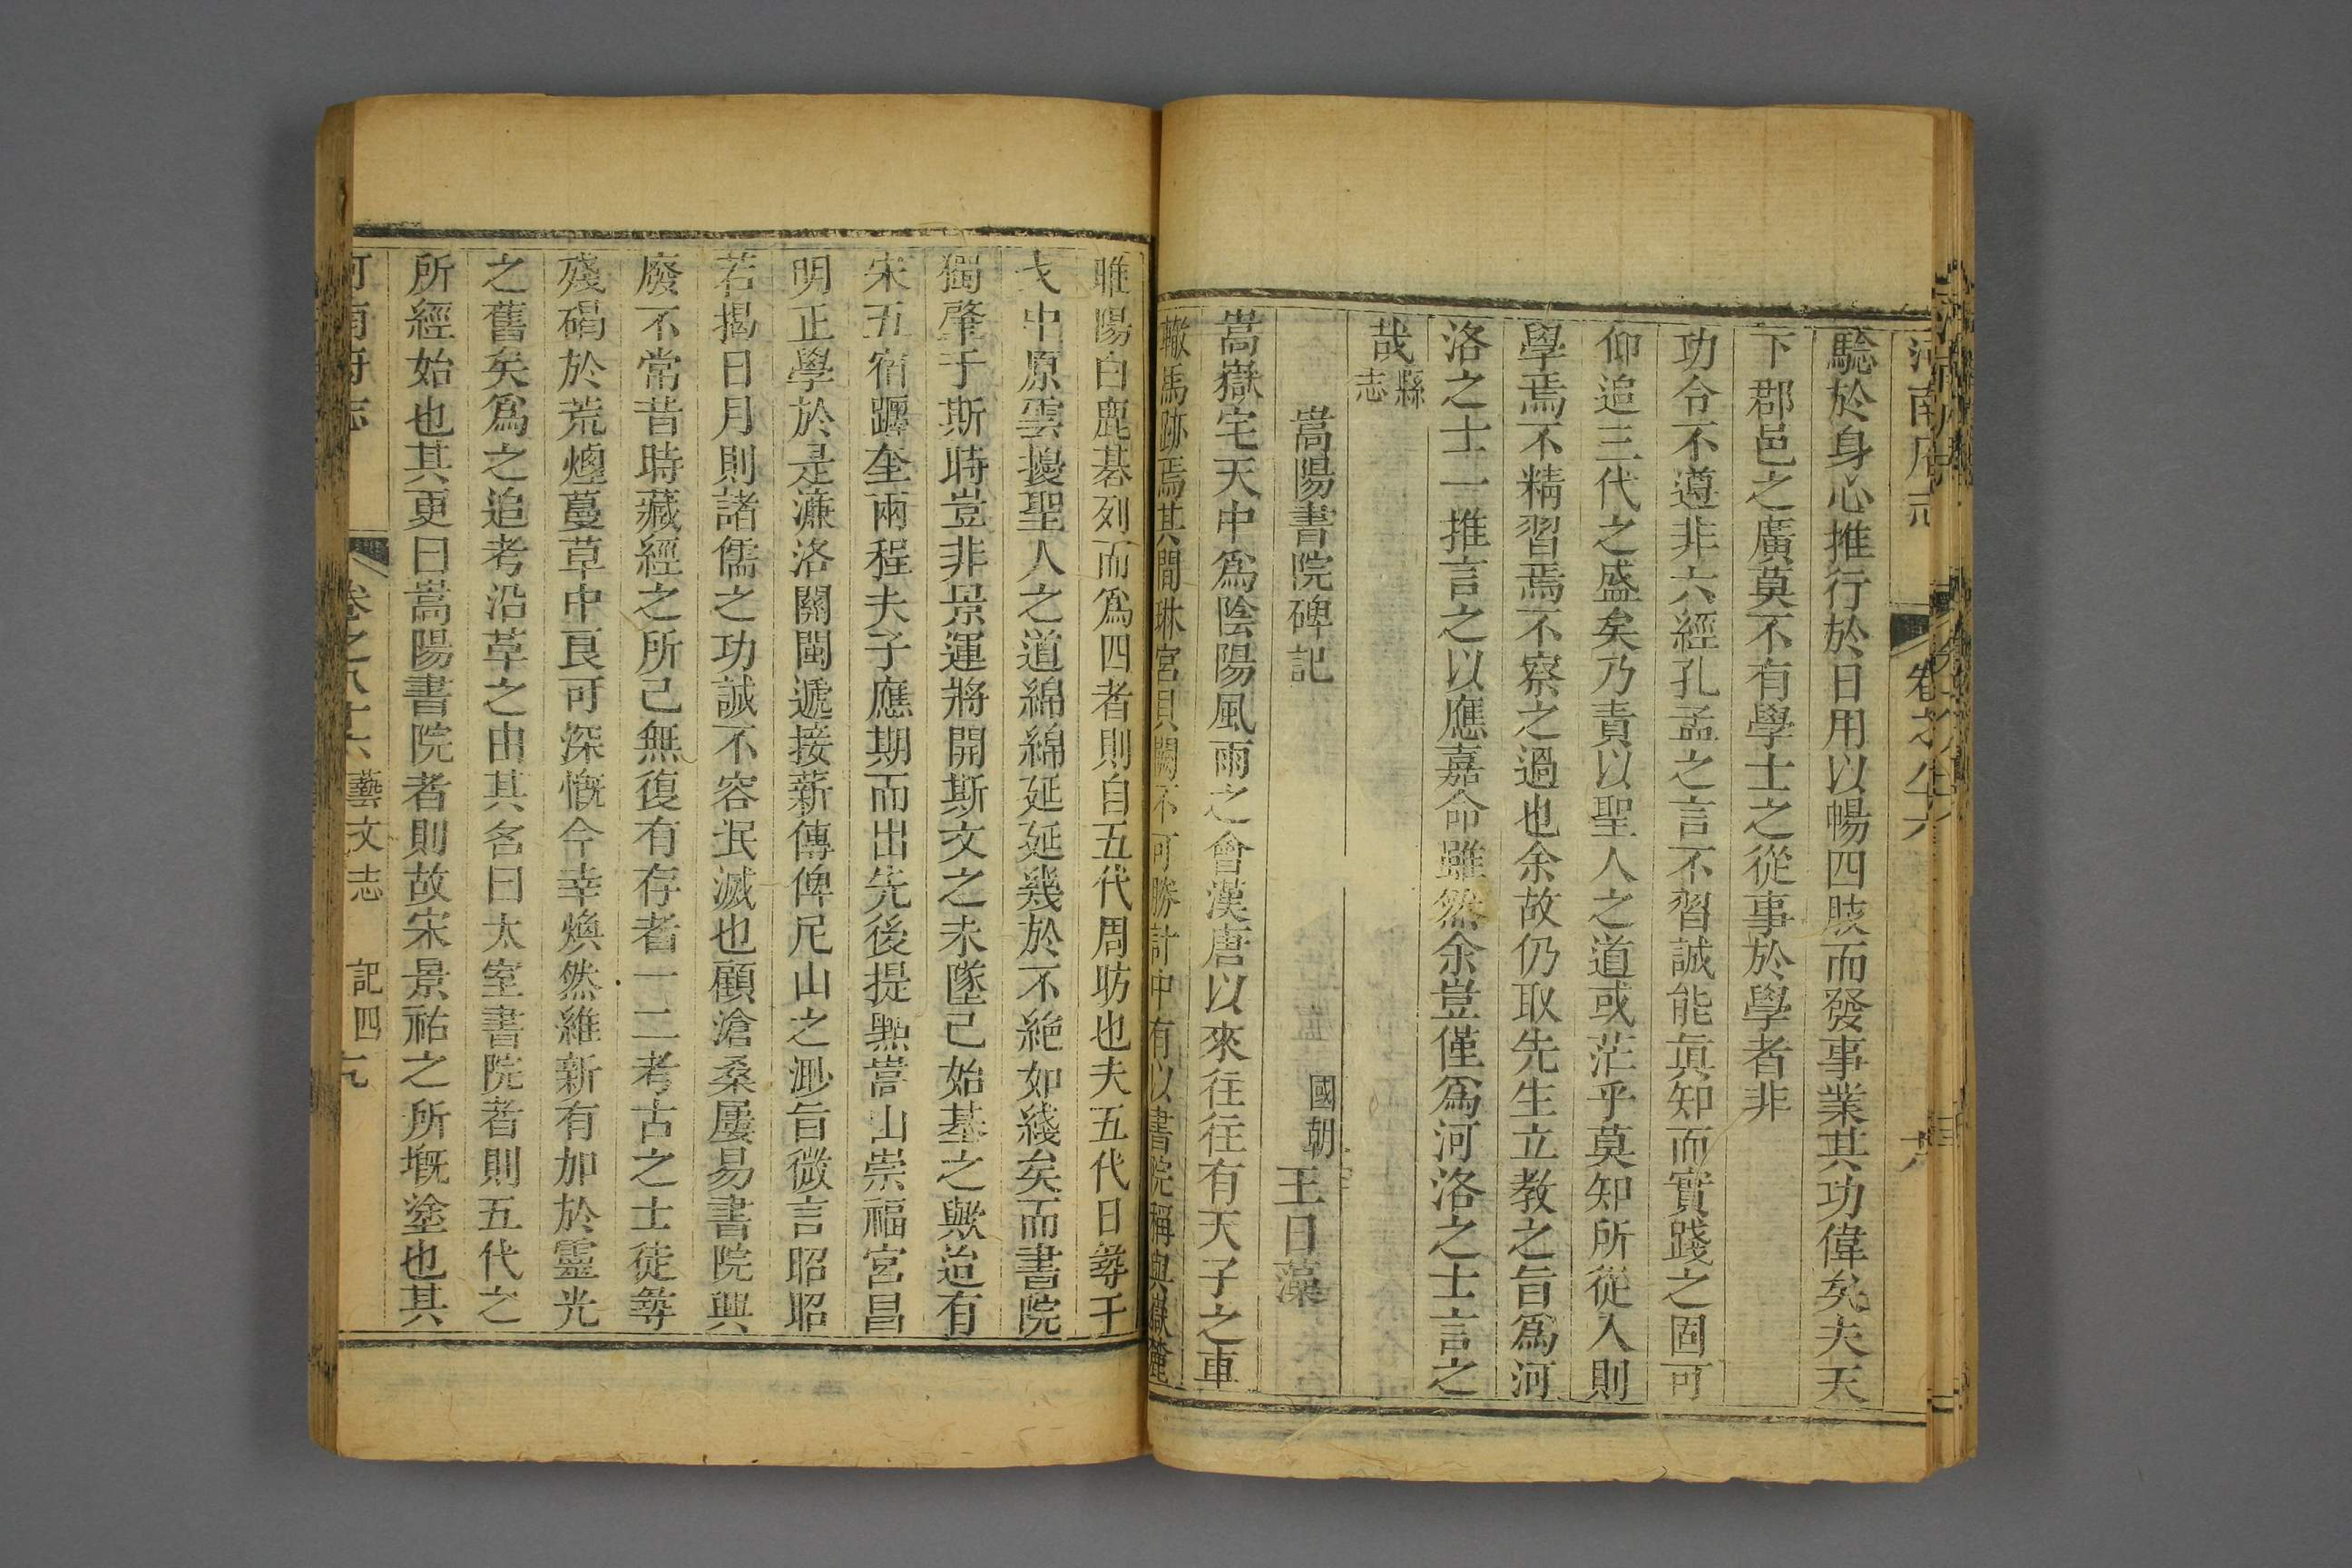 河南府志 卷之八十六
騐於身心推行於日用以暢四肢而發事業其功偉矣夫天
下郡邑之廣莫不有學士之從事於學者非
功令不遵非六經孔孟之言不習誠能眞知而實踐之固可
仰追三代之盛矣乃責以聖人之道或茫乎莫知所從入則
學焉不精習焉不察之過也余故仍取先生立教之旨爲河
洛之士一推言之以應嘉命雖然余豈僅爲河洛之士言之
哉縣志
嵩陽書院碑記 國朝王日藻
嵩嶽宅天中爲陰陽風雨之會漢唐以來往往有天子之車
轍馬跡焉其間琳宮貝闕不可勝計中有以書院稱與嶽麓
睢陽白鹿碁列而爲四者則自五代周昉也夫五代日尋干
戈中原雲擾聖人之道綿綿延延幾於不絶如綫矣而書院
獨肇于斯時豈非景運將開斯文之未墜已始基之歟迨有
宋五宿躔奎兩程夫子應期而出先後提點嵩山崇福宮昌
明正學於是濂洛關閩遞接薪傳俾尼山之渺旨微言昭昭
若揭日月則諸儒之功誠不容泯滅也顧滄桑屢易書院興
廢不常昔時藏經之所已無復有存者一二考古之士徒尋
殘碣於荒烟蔓草中良可深慨今幸煥然維新有加於靈光
之舊矣爲之追考沿革之由其名曰太室書院者則五代之
所經始也其更曰嵩陽書院者則故宋景祐之所墍塗也其
河南府志 卷之八十六 藝文志 記四 九